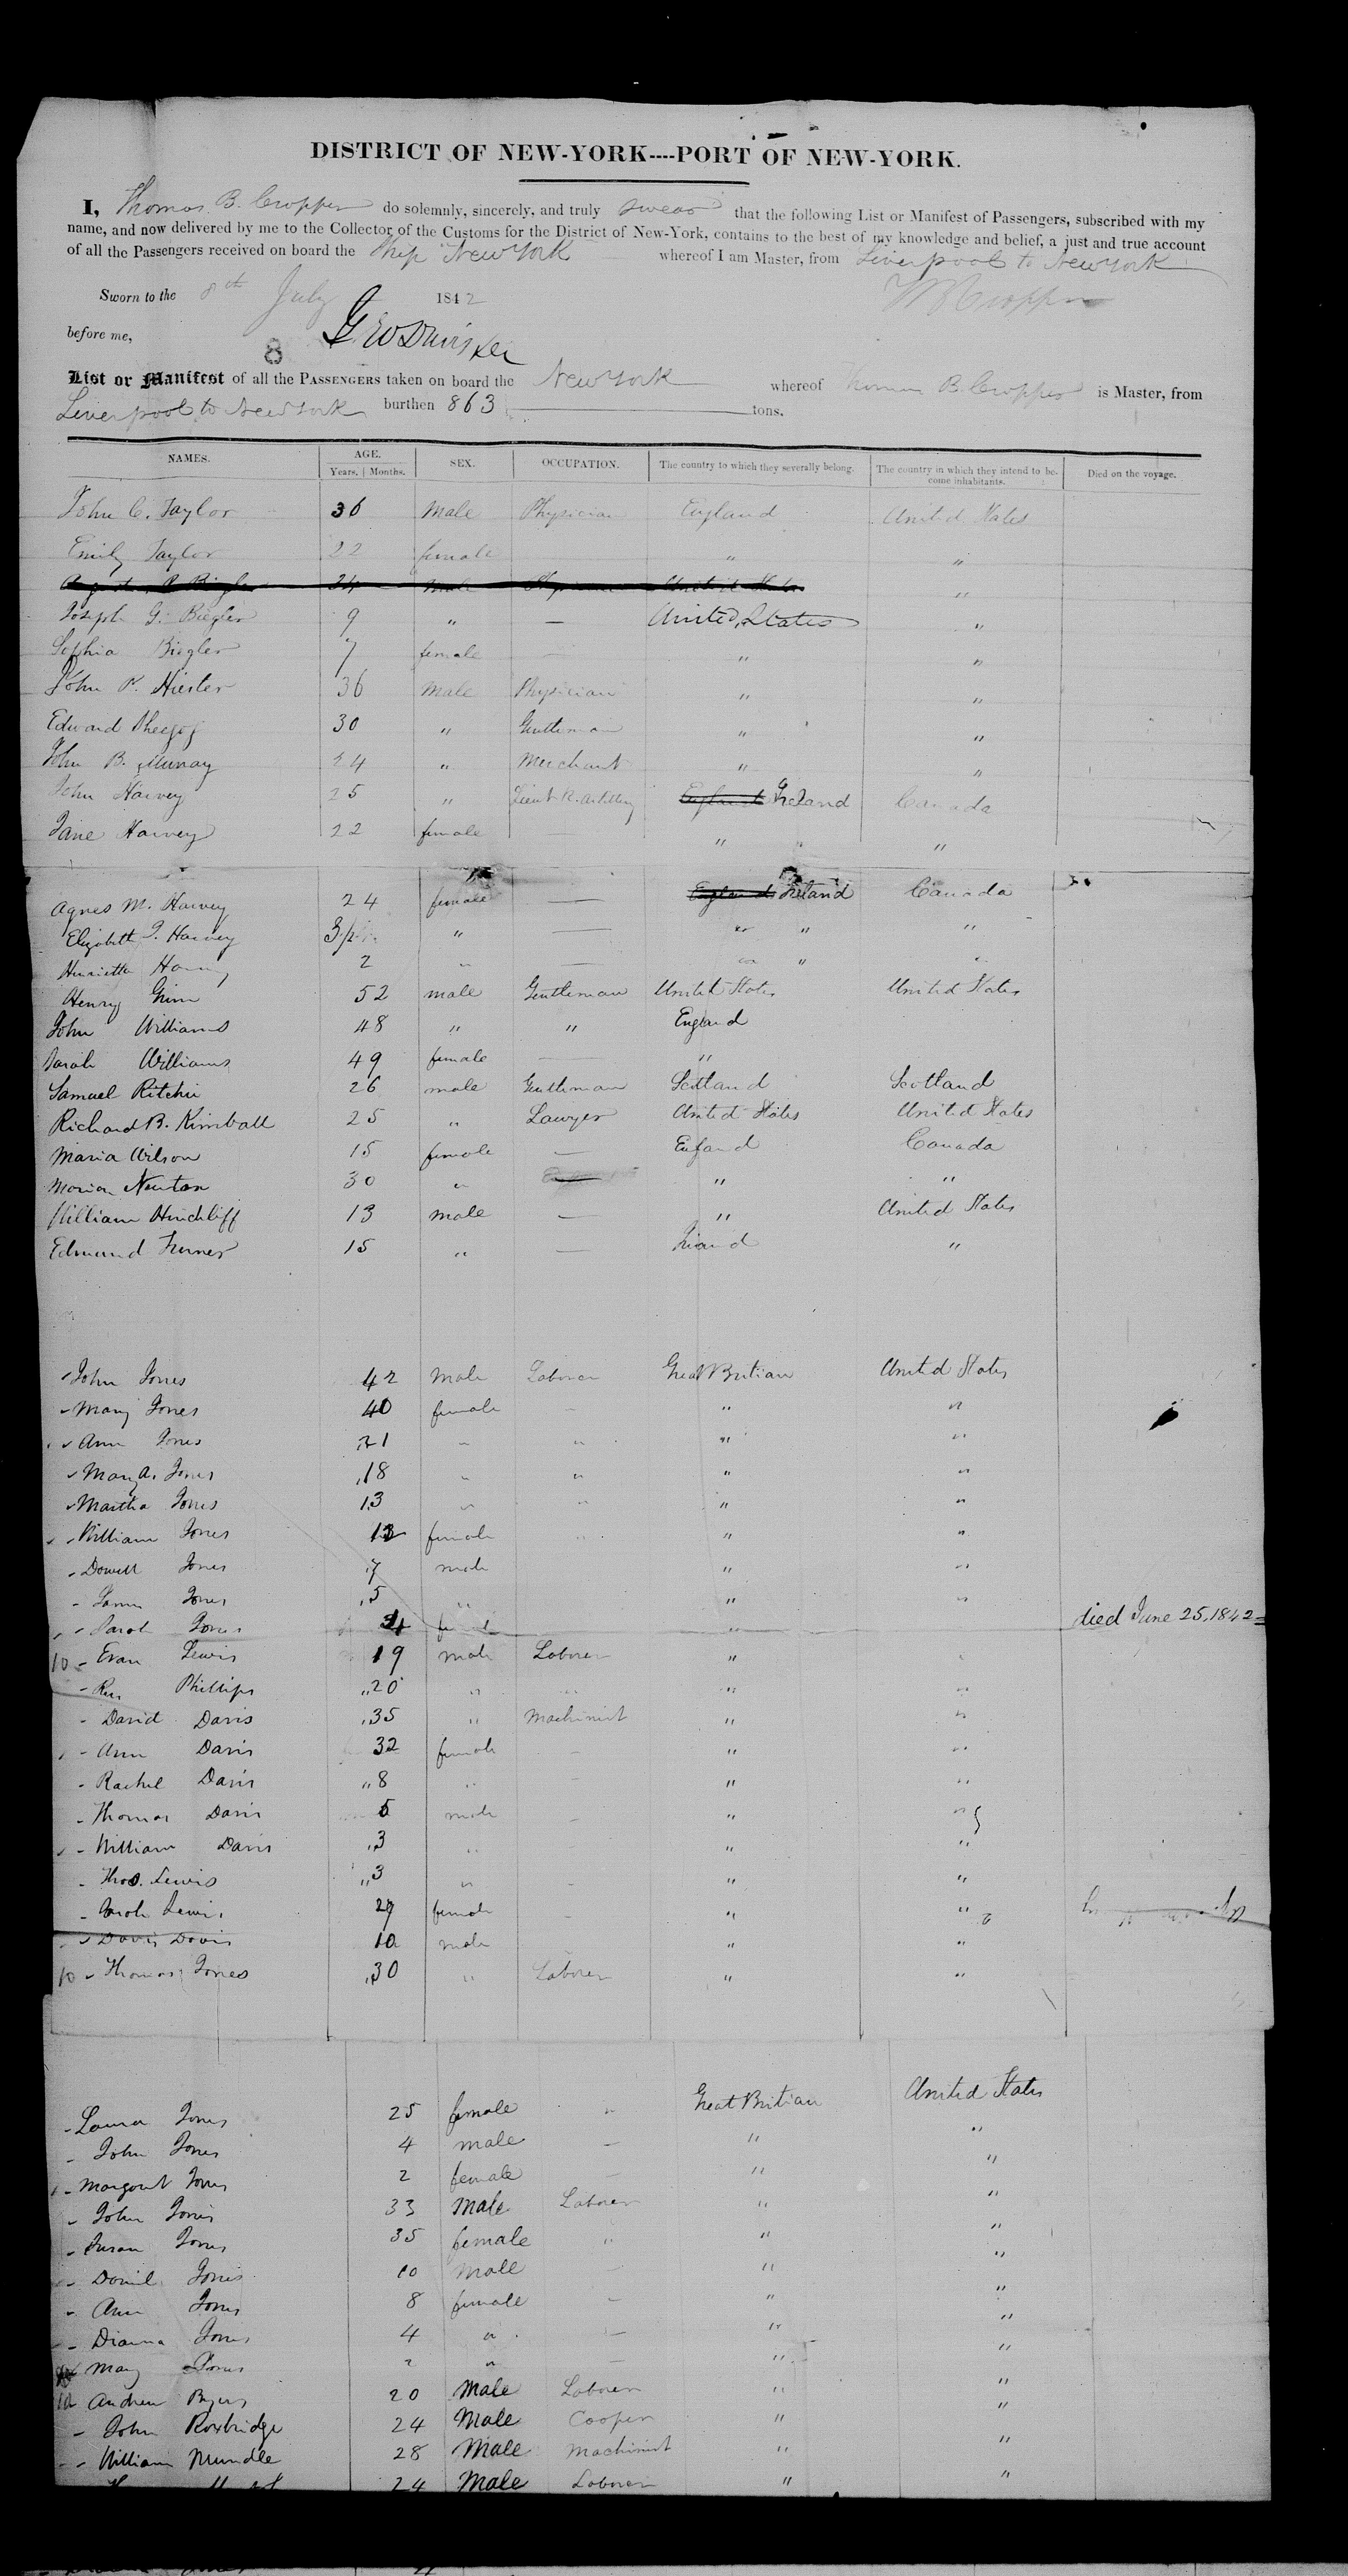 DISTRICT OF NEW-YORK----PORT OF NEW-YORK.
I, Thomas B. Cropper do solemnly, sincerely, and truly swear that the following List or Manifest of Passengers, subscribed with my
name, and now delivered by me to the Collector of the Customs for the District of New-York, contains to the best of my knowledge and belief, a just and true account
of all the Passengers received on board the Ship New York whereof I am Master, from Liverpool to New York
Sworn to the 8th July 1842 Cropper
before me,
8
List or Manifest of all the PASSENGERS taken on board the New York whereof Thomas B. Cropper is Master, from
Liverpool to New York burthen 863 tons.
NAMES. AGE. Years. Months. SEX. OCCUPATION. The country to which they severally belong. The country in which they intend to become inhabitants. Died on the voyage.
John C. Taylor 36 Male Physician England United States
Emily Taylor 22 female " "
Male "
Joseph G. Biegler 9 " — United States "
Sophia Biegler 7 female — " "
John P. Hiester 36 Male Physician " "
Edward 30 " Gentleman " "
John B. Murray 24 " Merchant " "
John Harvey 25 " Lieut R. Artillery England Ireland Canada
Jane Harvey 22 female — " "
Agnes M. Harvey 24 female — England Ireland Canada
Elizabeth J. Harvey 3 " — " " "
Henrietta Harvey 2 " — " " "
Henry Grim 52 male Gentleman United States United States
John Williams 48 " " England
Sarah Williams 49 female — "
Samuel Ritchie 26 male Gentleman Scotland Scotland
Richard B. Kimball 25 " Lawyer United States United States
Maria Wilson 15 female — England Canada
Marian Newton 30 " " "
William Hinchliff 13 male — " United States
Edmund Turner 15 " — Ireland "
John Jones 42 Male Laborer Great Britian United States
Mary Jones 40 female - " "
Ann Jones 21 " " " "
Mary A. Jones 18 " " " "
Martha Jones 13 " " " "
William Jones 12 female " " "
Dowell Jones 7 male " "
James Jones 5 " " "
Sarah Jones 4 female " died June 25, 1842
10 Evan Lewis 19 male Laborer " "
Rees Phillips 20 " " " "
David Davis 35 " Machinist " "
Ann Davis 32 female - " "
Rachel Davis 8 " - " "
Thomas Davis 5 male - " "
William Davis 3 " " "
Thos. Lewis 3 " - " "
Sarah Lewis 29 female - " "
Davis Davis 10 male " "
10 Thomas Jones 30 " Laborer " "
Laura Jones 25 female " Great Britian United States
John Jones 4 male — " "
Margaret Jones 2 female — " "
John Jones 33 Male Laborer " "
Susan Jones 35 female " " "
Daniel Jones 10 male — " "
Ann Jones 8 female — " "
Dianna Jones 4 " — " "
Mary Jones 2 " — " "
10 Andrew Byers 20 Male Laborer " "
John Roxbridge 24 Male Cooper " "
William Mundle 28 Male Machinist " "
24 Male Laborer " "